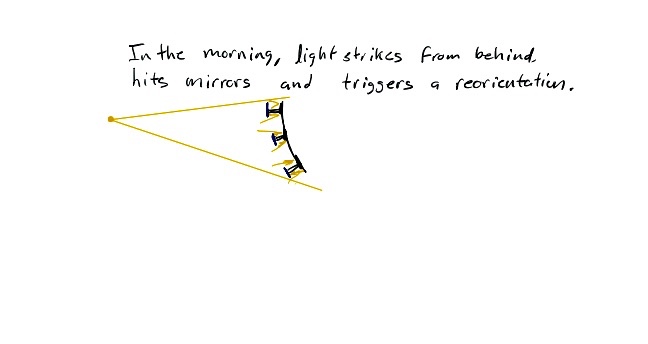 In the morning, light strikes from behind,
hits mirrors and triggers a reorientation.